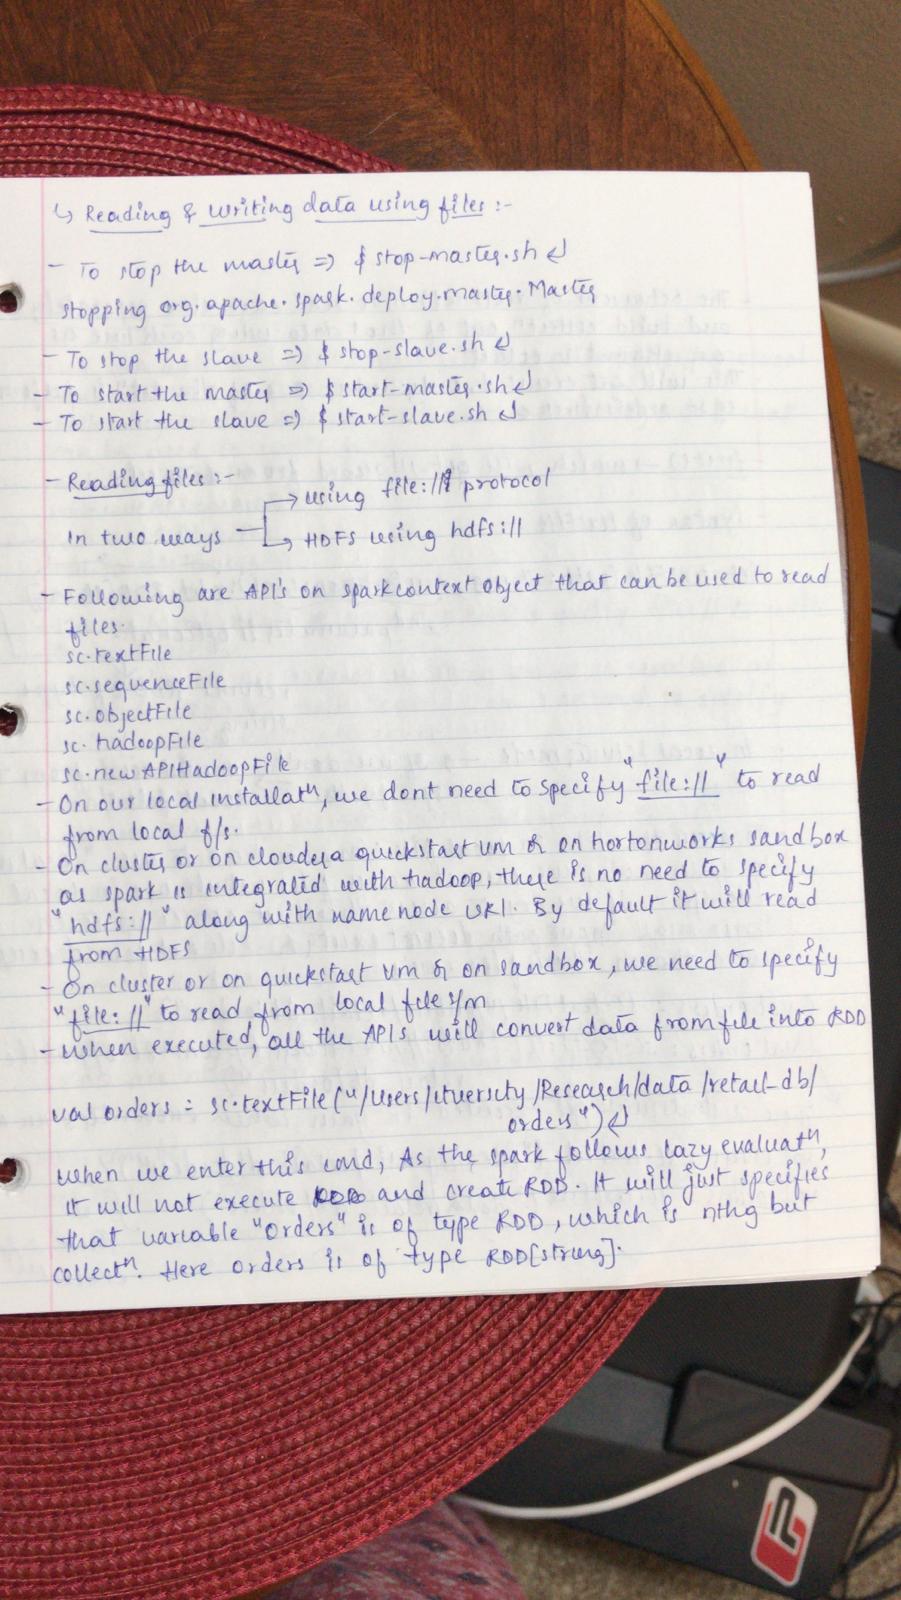 ↳ Reading & writing data using files :-
- To stop the master => $ stop-master.sh ↲
stopping org.apache.spark.deploy.master.Master
- To stop the slave => $ stop-slave.sh ↲
- To start the master => $ start-master.sh ↲
- To start the slave => $ start-slave.sh ↲
- Reading files :-
→ using file:/// protocol
In two ways
↳ HDFS using hdfs://
- Following are API's on sparkcontext object that can be used to read
files.
sc.textFile
sc.sequenceFile
sc.objectFile
sc.hadoopFile
sc.newAPIHadoopFile
- On our local installatⁿ, we dont need to specify "file://" to read
from local f/s.
- On cluster or on cloudera quickstart vm or on hortonworks sandbox
as spark is integrated with hadoop, there is no need to specify
"hdfs://" along with name node URI. By default it will read
from HDFS
- On cluster or on quickstart vm or on sandbox, we need to specify
"file://" to read from local file s/m
- When executed, all the APIs will convert data from file into RDD
val orders = sc.textFile("/Users/itversity/Research/data/retail_db/
orders") ↲
When we enter this cmd, As the spark follows lazy evaluatⁿ,
it will not execute and create RDD. It will just specifies
that variable "orders" is of type RDD, which is nthg but
collectⁿ. Here orders is of type RDD[string].